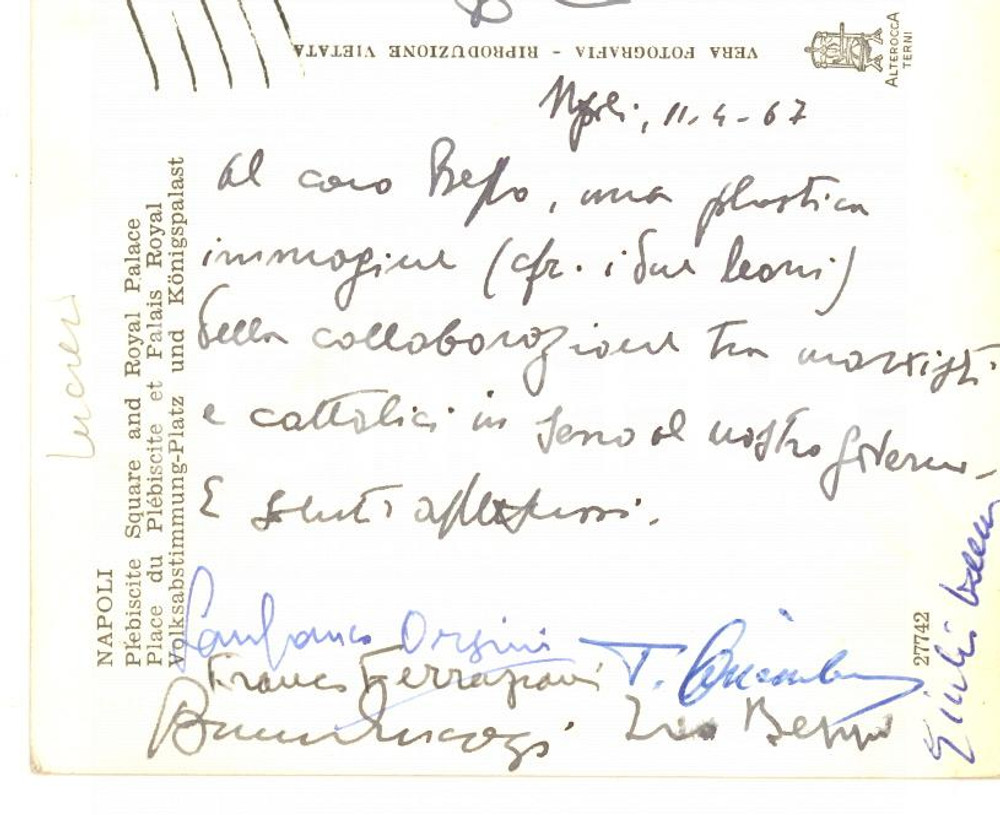 VERA FOTOGRAFIA - RIPRODUZIONE VIETATA
ALTEROCCA
TERNI
Napoli, 11-4-67
Al caro Beppo, una plastica
immagine (cfr. i due leoni)
della collaborazione tra marxisti
e cattolici in seno al nostro governo.
E saluti affettuosi.
Lanfranco Orsini
Franco Ferrazzani
Zio Beppo
NAPOLI
Plebiscite Square and Royal Palace
Place du Plébiscite et Palais Royal
Volksabstimmung-Platz und Königspalast
27742